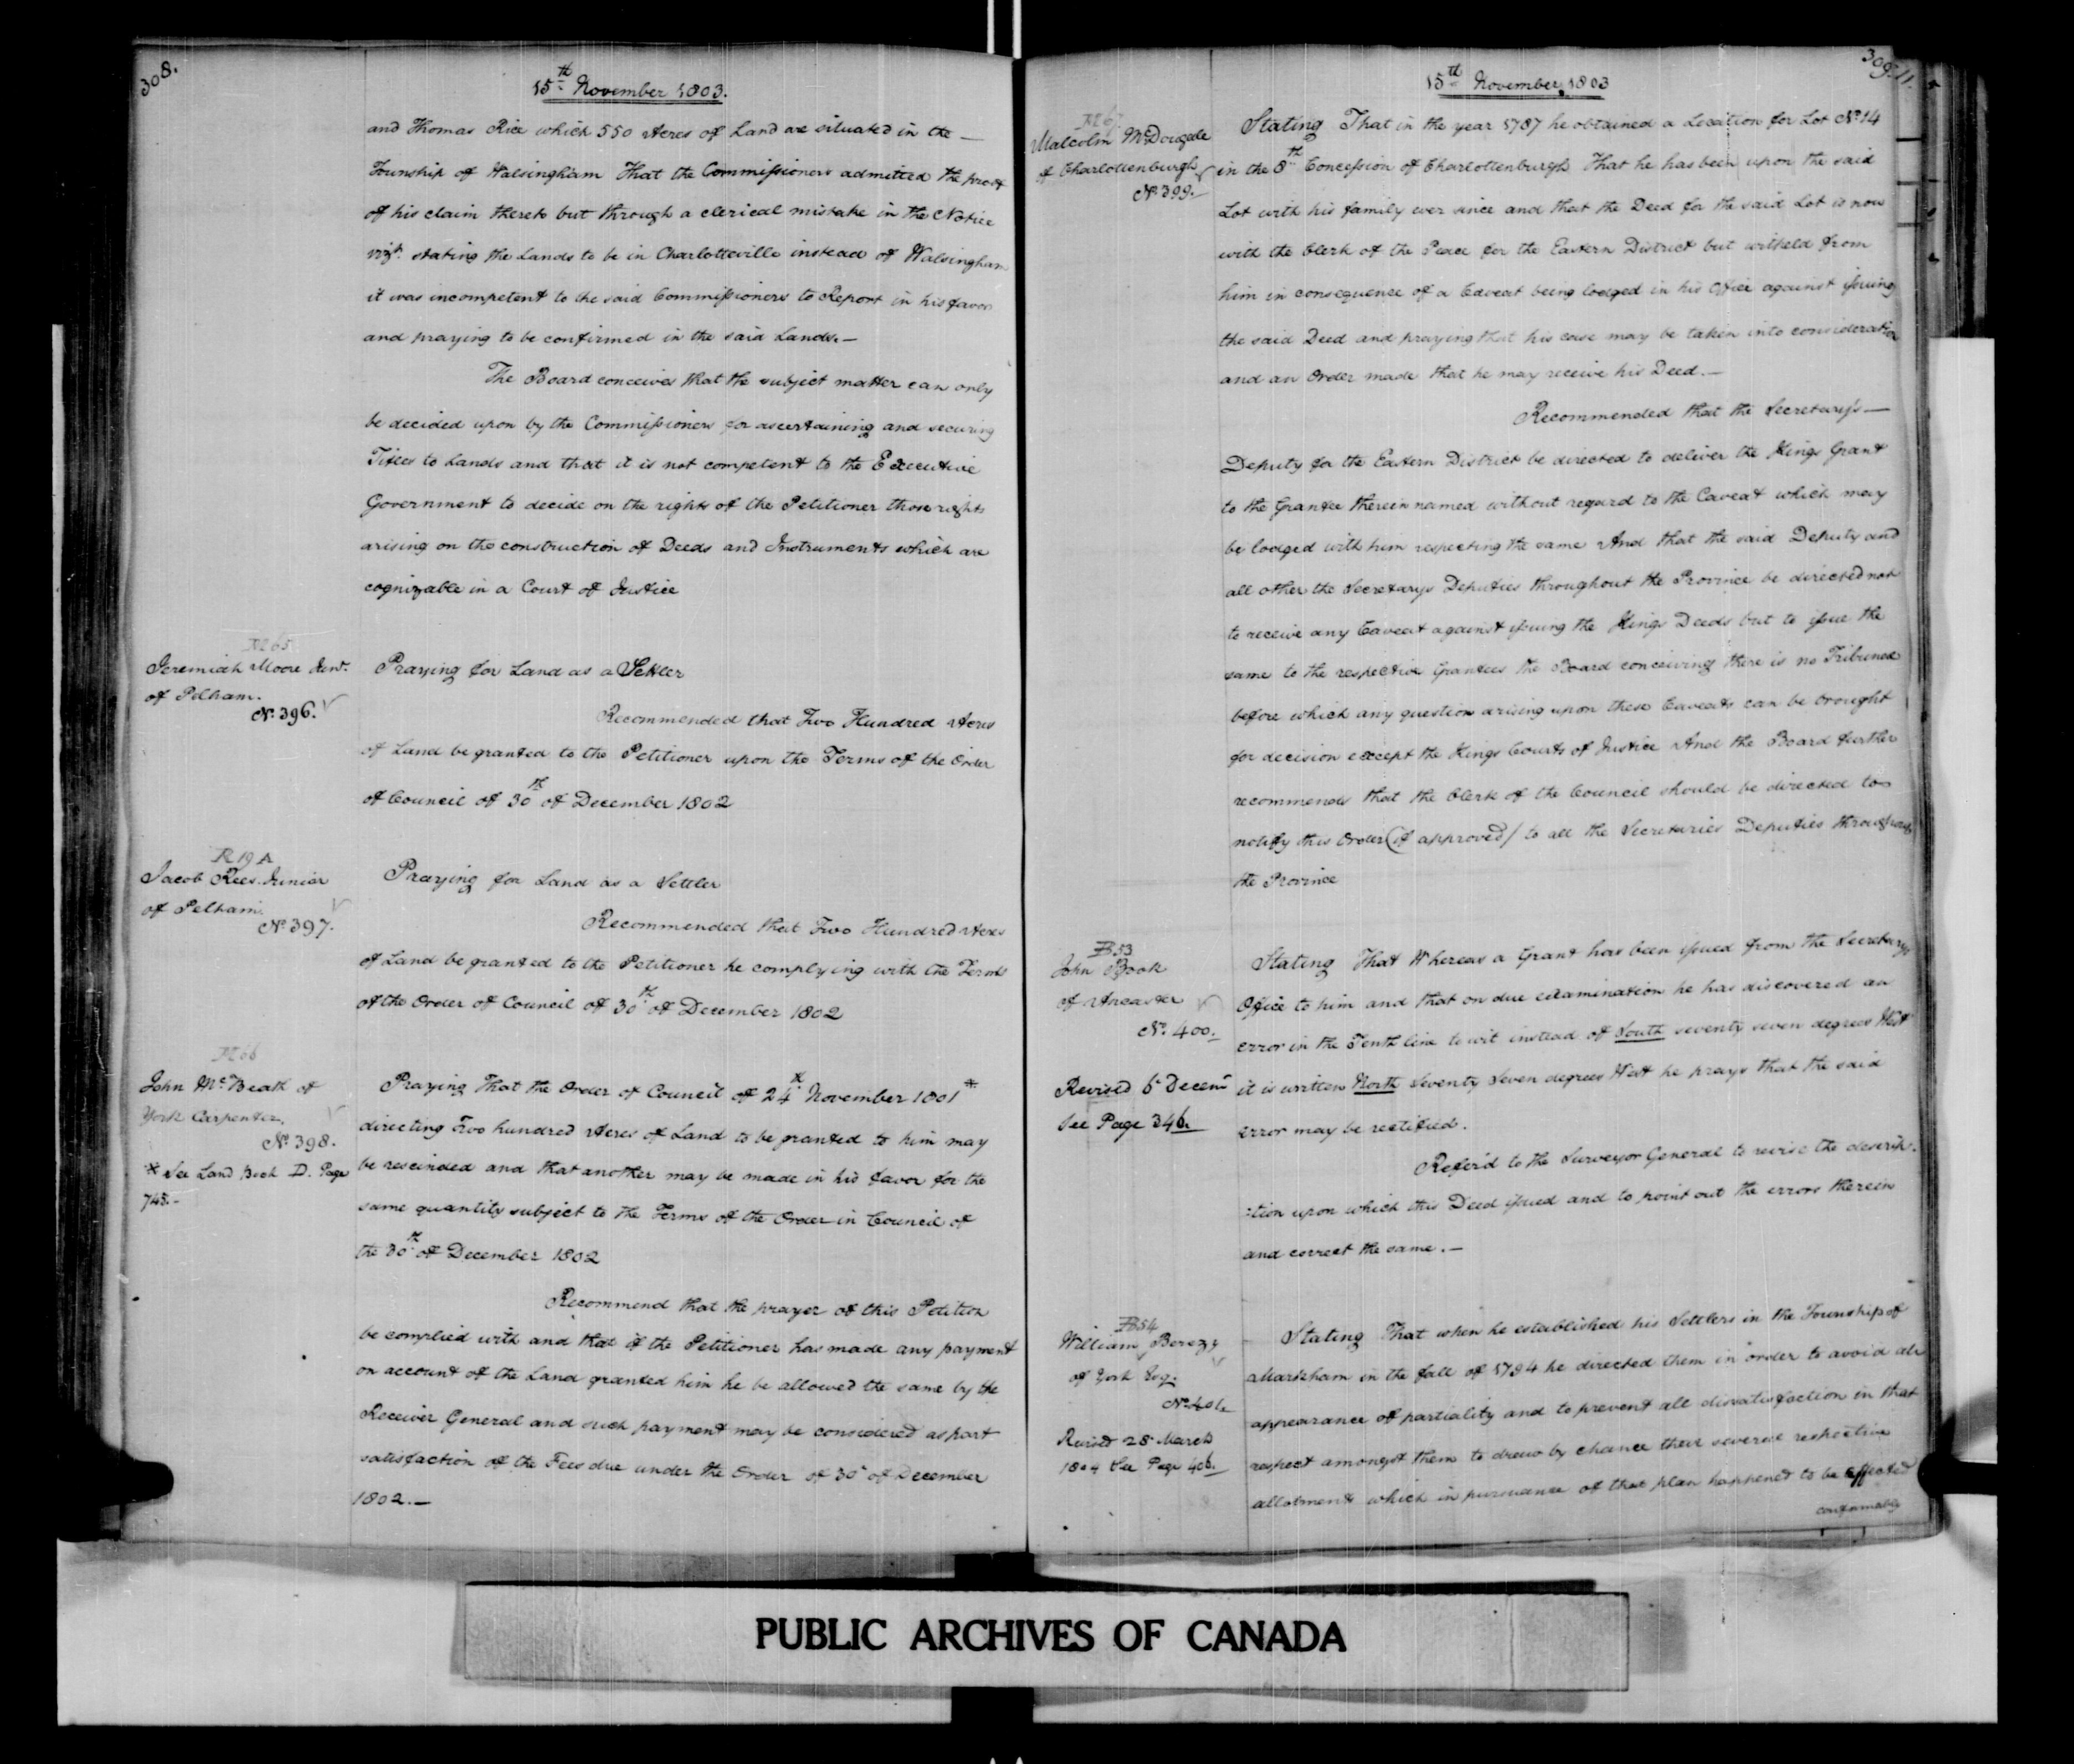 308.
15th November 1803.
and Thomas Rice which 550 Acres of Land are situated in the —
Township of Walsingham That the Commissioners admitted the proof
of his claim thereto but through a clerical mistake in the Notice
vizt. stating the Lands to be in Charlotteville instead of Walsingham
it was incompetent to the said Commissioners to Report in his favor
and praying to be confirmed in the said Lands.—
The Board conceives that the subject matter can only
be decided upon by the Commissioners for ascertaining and securing
Titles to Lands and that it is not competent to the Executive
Government to decide on the rights of the Petitioner those rights
arising on the construction of Deeds and Instruments which are
cognizable in a Court of Justice
M 65
Jeremiah Moore Junr.
of Pelham.
No. 396.
Praying for Land as a Settler
Recommended that Two Hundred Acres
of Land be granted to the Petitioner upon the Terms of the Order
of Council of 30th of December 1802
R 19 A
Jacob Rees Junior
of Pelham.
No. 397.
Praying for Land as a Settler
Recommended that Two Hundred Acres
of Land be granted to the Petitioner he complying with the Terms
of the Order of Council of 30th of December 1802
M 66
John McBeath of
York Carpenter.
No. 398.
* See Land Book D. Page
748.-
Praying That the Order of Council of 24th November 1801 *
directing Two hundred Acres of Land to be granted to him may
be rescinded and that another may be made in his favor for the
same quantity subject to the Terms of the Order in Council of
the 30th of December 1802
Recommend that the prayer of this Petition
be complied with and that if the Petitioner has made any payment
on account of the Land granted him he be allowed the same by the
Receiver General and such payment may be considered as part
satisfaction of the Fees due under the Order of 30th of December
1802.—
309.
15th November 1803
M 67
Malcolm McDougale
of Charlottenburgh
No. 399.
Stating That in the year 1787 he obtained a Location for Lot No. 14
in the 8th Concession of Charlottenburgh That he has been upon the said
Lot with his family ever since and that the Deed for the said Lot is now
with the Clerk of the Peace for the Eastern District but witheld from
him in consequence of a Caveat being lodged in his Office against issuing
the said Deed and praying that his case may be taken into consideration
and an Order made that he may receive his Deed.—
Recommended that the Secretary's —
Deputy for the Eastern District be directed to deliver the Kings Grant
to the Grantee therein named without regard to the Caveat which may
be lodged with him respecting the same And that the said Deputy and
all other the Secretarys Deputies throughout the Province be directed not
to receive any Caveat against issuing the Kings Deeds but to issue the
same to the respective Grantees the Board conceiving there is no Tribunal
before which any question arising upon these Caveats can be brought
for decision except the Kings Courts of Justice And the Board further
recommends that the Clerk of the Council should be directed to
notify this Order (if approved) to all the Secretaries Deputies throughout
the Province
B 53
John Book
of Ancaster
No. 400.
Revised 6 Decem
See Page 346.
Stating That Whereas a Grant has been issued from the Secretarys
Office to him and that on due examination he has discovered an
error in the Tenth line to wit instead of South seventy seven degrees West
it is written North Seventy Seven degrees West he prays that the said
error may be rectified.
Refer'd to the Surveyor General to revise the descrip-
:tion upon which this Deed issued and to point out the errors therein
and correct the same.—
B 54
William Berczy
of York Esq.
No. 401.
Revised 28 March
1804 See Page 406.
Stating That when he established his Settlers in the Township of
Markham in the fall of 1794 he directed them in order to avoid all
appearance of partiality and to prevent all dissatisfaction in that
respect amongst them to draw by chance their several respective
allotments which in pursuance of that plan happened to be effected
conformably
PUBLIC ARCHIVES OF CANADA